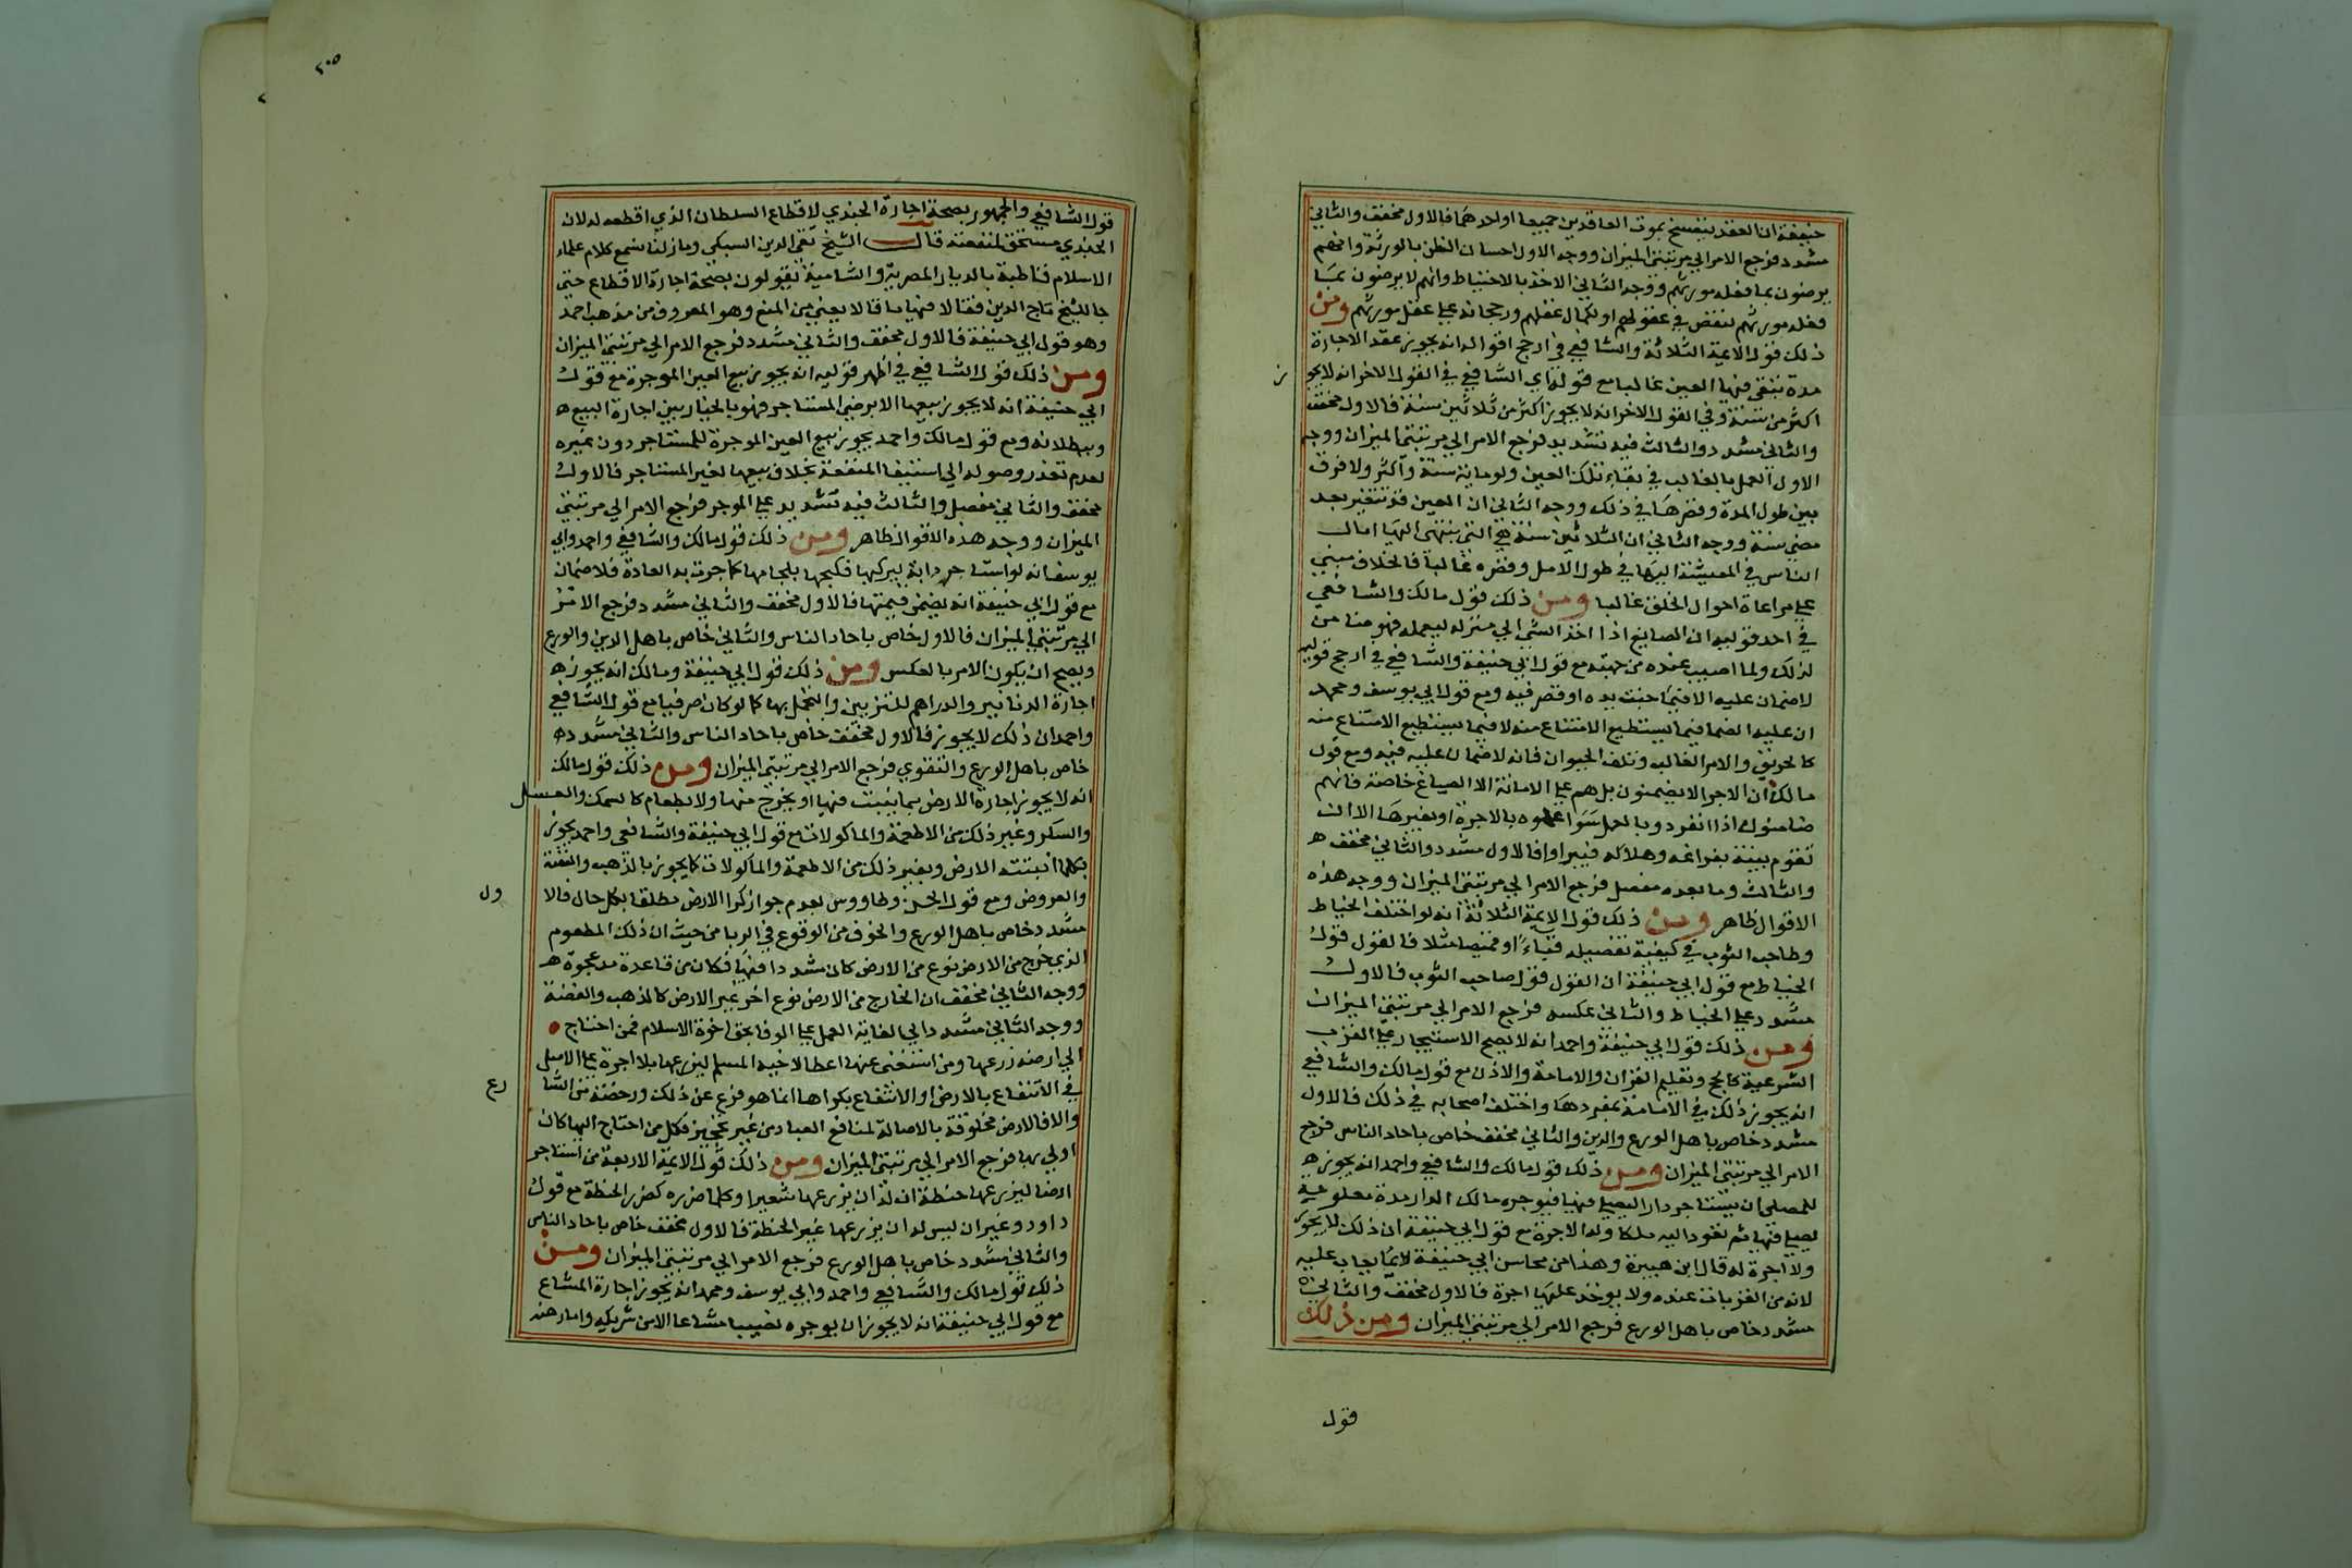 حنيفة ان العقد ينفسخ بموت العاقدين جميعا او احدهما فالاول مخفف والثاني
مشدد فرجع الامر الي مرتبتي الميزان ووجه الاول احسان الظن بالورثة وانهم
يرضون بما فعله مورثهم ووجه الثاني الاخذ بالاحتياط وانهم لا يرضون بما
فعله مورثهم لنقص في عقولهم او لكمال عقلهم ورجحانه علي عقل مورثهم ومن
ذلك قول الايمة الثلاثة والشافعي في ارجح اقواله انه يجوز عقد الاجارة
مدة تبقى فيها العين غالبا مع قوله اي الشافعي في القول الاخر انه لا يجو ز
اكثر من سنة وفي القول الاخر انه لا يجوز اكثر من ثلاثين سنة فالاول مخفف
والثاني مشدد والثالث فيه تشديد فرجع الامر الي مرتبتي الميزان ووجه
الاول العمل بالغالب في بقاء تلك العين ولو ماية سنة واكثر ولا فرق
بين طول المدة وقصرها في ذلك ووجه الثاني ان العين قد تتغير بعد
مضي سنة ووجه الثاني ان الثلاثين سنة هي التي ينتهى اليها امال
الناس في المعيشة اليها في طول الامل وقصره غالبا فالخلاف مبني
علي مراعاة احوال الخلق غالبا ومن ذلك قول مالك والشافعي
في احد قوليه ان الصايغ اذا اخذ الشي الي منزله ليعمله فهو ضامن
لذلك ولما اصيب عنده من جهته مع قول ابي حنيفة والشافعي في ارجح قوليه
لا ضمان عليه الا فيما جنت يده او قصر فيه ومع قول ابي يوسف ومحمد
ان عليه الضما فيما يستطيع الامتناع منه لا فيما يستطيع الامتناع منه
كالحريق والامر الغالب وتلف الحيوان فانه لا ضمان عليه فيه ومع قول
مالك ان الاجرا لا يضمنون بل هم علي الامانة الا الصياغ خاصة فانهم
ضامنون اذا انفردو بالعمل سوا عملوه بالاجرة او بغيرها الا ان
تقوم بينة بفراغه وهلاكه فيبراوا فالاول مشدد والثاني مخفف ه
والثالث وما بعده مفصل فرجع الامر الي مرتبتي الميزان ووجه هذه
الاقوال ظاهر ومن ذلك قول الايمة الثلاثة انه لو اختلف الخياط
وصاحب الثوب في كيفية تفصيله قباء او قميصا مثلا فالقول قول
الخياط مع قول ابي حنيفة ان القول قول صاحب الثوب فالاول
مشدد علي الخياط والثاني عكسه فرجع الامر الي مرتبتي الميزان
ومن ذلك قول ابي حنيفة واحمد انه لا يصح الاستيجار علي القرب
الشرعية كالحج وتعليم القران والامامة والاذن مع قول مالك والشافعي
انه يجوز ذلك في الامامة بمفردها واختلف اصحابه في ذلك فالاول
مشدد خاص باهل الورع والدين والثاني مخفف خاص باحاد الناس فرجع
الامر الي مرتبتي الميزان ومن ذلك قول مالك والشافعي واحمد انه يجوز ه
للمصلي ان يستاجر دارا ليصلي فيها فيوجره مالك الدار مدة معلومة
ليصلي فيها ثم تعود اليه ملكا وله الاجرة مع قول ابي حنيفة ان ذلك لا يجوز
ولا اجرة له قال ابن هبيرة وهذا من محاسن ابي حنيفة لا مما يعاب عليه
لانه من القربات عنده ولا يوخذ عليها اجرة فالاول مخفف والثاني
مشدد خاص باهل الورع فرجع الامر الي مرتبتي الميزان ومن ذلك
قول
٢٠٥
قول الشافعي والجمهور بصحة اجارة الجندي لاقطاع السلطان الذي اقطعه له لان
الجندي مستحق لمنفعته قال الشيخ تقي الدين السبكي وما زلنا نسمع كلام علماء
الاسلام قاطبة بالديار المصرية والشامية يقولون بصحة اجارة الاقطاع حتى
جا الشيخ تاج الدين فقالا فيها ما قالا يعني من المنع وهو المعروف من مذهب احمد
وهو قول ابي حنيفة فالاول مخفف والثاني مشدد فرجع الامر الي مرتبتي الميزان
ومن ذلك قول الشافعي في اظهر قوليه انه يجوز بيع العين الموجرة مع قول
ابي حنيفة انه لا يجوز بيعها الا برضي المستاجر فهو بالخيار بين اجارة البيع ه
وبطلانه ومع قول مالك واحمد يجوز بيع العين الموجرة للمستاجر دون غيره
لعدم تعذر وصوله الي استيفا المنفعة بخلاف بيعها لغير المستاجر فالاول
مخفف والثاني مفصل والثالث فيه تشديد علي الموجر فرجع الامر الي مرتبتي
الميزان ووجه هذه الاقوال ظاهر ومن ذلك قول مالك والشافعي واحمد وابي
يوسف انه لو استاجر دابة ليركبها فكبحها بلجامها كما جرت به العادة فلا ضمان
مع قول ابي حنيفة انه يضمن قيمتها فالاول مخفف والثاني مشدد فرجع الامر
الي مرتبتي الميزان فالاول خاص باحاد الناس والثاني خاص باهل الدين والورع
ويصح ان يكون الامر بالعكس ومن ذلك قول ابي حنيفة ومالك انه يجوز ه
اجارة الدنانير والدراهم للتزيين والتجمل بها كما لو كان صرفيا مع قول الشافعي
واحمد ان ذلك لا يجوز فالاول مخفف خاص باحاد الناس والثاني مشدد ه
خاص باهل الورع والتقوي فرجع الامر الي مرتبتي الميزان ومن ذلك قول مالك
انه لا يجوز اجارة الارض بما ينبت فيها او يخرج منها ولا بطعام كالسمك والعسل
والسكر وغير ذلك من الاطعمة والماكولات مع قول ابي حنيفة والشافعي واحمد يجوز
بكلما انبتته الارض وبغير ذلك من الاطعمة والماكولات كما يجوز بالذهب والفضة
والعروض ومع قول الحسن وطاووس بعدم جواز كرا الارض مطلقا بكل حال فالا ول
مشدد خاص باهل الورع والخوف من الوقوع في الربا من حيث ان ذلك المطعوم
الذي خرج من الارض نوع من الارض كان مشددا فيها فكان من قاعدة مد عجوة ه
ووجه الثاني مخفف ان الخارج من الارض نوع اخر غير الارض كالذهب والفضة
ووجه الثاني مشدد الي الغاية العمل علي الوفا بحق اخوة الاسلام فمن احتاج
الي ارضه زرعها ومن استغنى عنها اعطا لاخيه المسلم ليزرعها بلا اجرة علي الاصل
في الانتفاع بالارض او الانتفاع بكراها انما هو فرع عن ذلك ورخصة من الشا رع
والا فالارض مخلوقة بالاصالة لمنافع العباد من غير تحجيز فكل من احتاج اليها كان
اولي بها فرجع الامر الي مرتبتي الميزان ومن ذلك قول الايمة الاربعة من استاجر
ارضا ليزرعها حنطة انه له ان يزرعها شعيرا وكلما ضرره كضرر الحنطة مع قول
داود وغير ان ليس له ان يزرعها غير الحنطة فالاول مخفف خاص باحاد الناس
والثاني مشدد خاص باهل الورع فرجع الامر الي مرتبتي الميزان ومن
ذلك قول مالك والشافعي واحمد وابي يوسف ومحمد انه يجوز اجارة المشاع
مع قول ابي حنيفة انه لا يجوز ان يوجره نصيبا مشاعا الا من شريكه واما رهنه